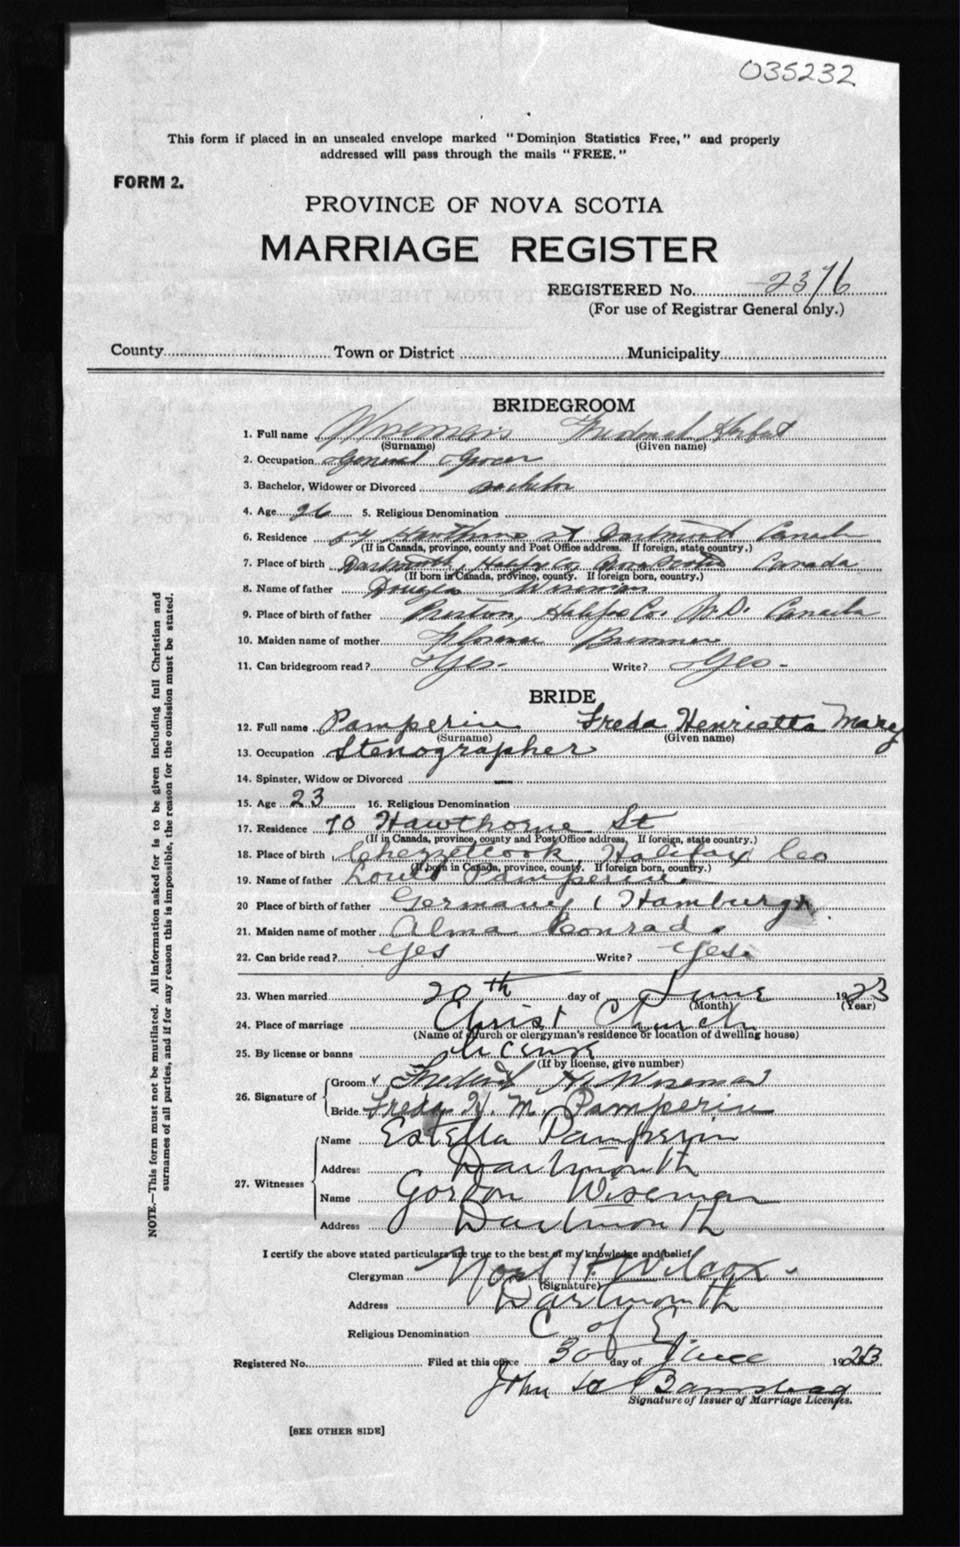 035232
This form if placed in an unsealed envelope marked "Dominion Statistics Free," and properly
addressed will pass through the mails "FREE."
FORM 2.
PROVINCE OF NOVA SCOTIA
MARRIAGE REGISTER
REGISTERED No. 2376
(For use of Registrar General only.)
County Town or District Municipality
BRIDEGROOM
1. Full name Wiseman Frederick Herbert
(Surname) (Given name)
2. Occupation General Grocer
3. Bachelor, Widower or Divorced Bachelor
4. Age 26 5. Religious Denomination
6. Residence Hawthorne St Dartmouth Canada
(If in Canada, province, county and Post Office address. If foreign, state country.)
7. Place of birth Dartmouth, Halifax Co Nova Scotia Canada
(If born in Canada, province, county. If foreign born, country.)
8. Name of father Douglas Wiseman
9. Place of birth of father Preston, Halifax Co. Canada
10. Maiden name of mother Florence Bremner
11. Can bridegroom read? Yes. Write? Yes.
BRIDE
12. Full name Pamperin Freda Henrietta Mary
(Surname) (Given name)
13. Occupation Stenographer
14. Spinster, Widow or Divorced —
15. Age 23 16. Religious Denomination
17. Residence 70 Hawthorne St
(If in Canada, province, county and Post Office address, If foreign, state country.)
18. Place of birth Chezzetcook, Halifax Co
(If born in Canada, province, county. If foreign born, country.)
19. Name of father Louis Pamperin.
20 Place of birth of father Germany (Hamburg)
21. Maiden name of mother Alma Conrad.
22. Can bride read? yes Write? yes.
23. When married 20th day of June 1923
(Month) (Year)
24. Place of marriage Christ Church
(Name of church or clergyman's residence or location of dwelling house)
25. By license or banns license
(If by license, give number)
26. Signature of Groom Frederick H. Wiseman
Bride Freda H. M. Pamperin
27. Witnesses Name Estella Pamperin
Address Dartmouth
Name Gordon Wiseman
Address Dartmouth
I certify the above stated particulars are true to the best of my knowledge and belief.
Clergyman Noel H. Wilcox.
(Signature)
Address Dartmouth
Religious Denomination C of E
Registered No. Filed at this office 30 day of June 1923
John
Signature of Issuer of Marriage Licenses.
[SEE OTHER SIDE]
NOTE.—This form must not be mutilated. All information asked for is to be given including full Christian and
surnames of all parties, and if for any reason this is impossible, the reason for the omission must be stated.